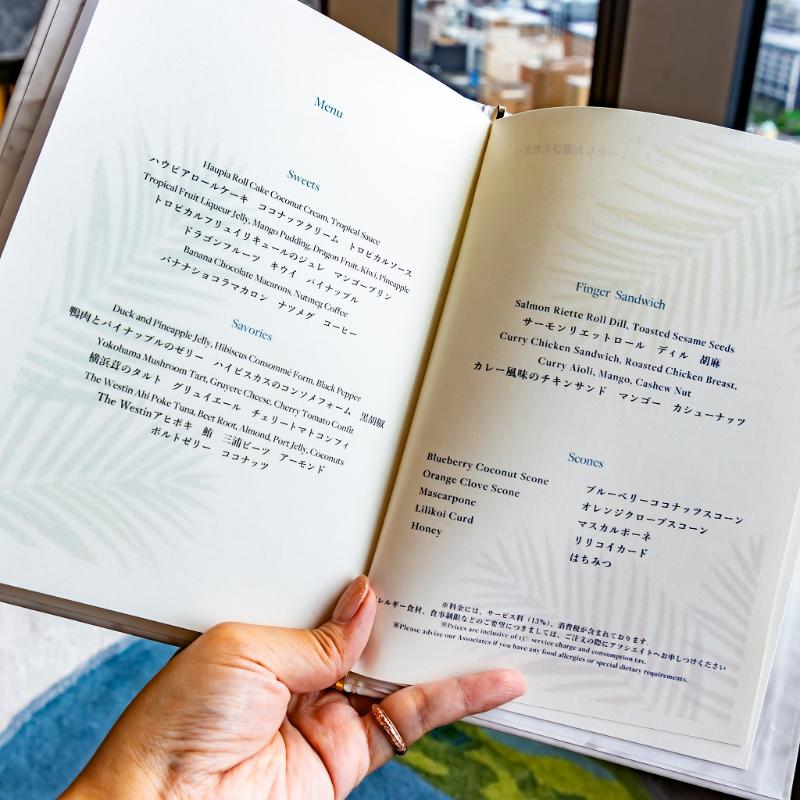 Menu
Sweets
Haupia Roll Cake Coconut Cream, Tropical Sauce
ハウピアロールケーキ　ココナッツクリーム　トロピカルソース
Tropical Fruit Liqueur Jelly, Mango Pudding, Dragon Fruit, Kiwi, Pineapple
トロピカルフリュイリキュールのジュレ　マンゴープリン
ドラゴンフルーツ　キウイ　パイナップル
Banana Chocolate Macarons, Nutmeg Coffee
バナナショコラマカロン　ナツメグ　コーヒー
Savories
Duck and Pineapple Jelly, Hibiscus Consommé Form, Black Pepper
鴨肉とパイナップルのゼリー　ハイビスカスのコンソメフォーム　黒胡椒
Yokohama Mushroom Tart, Gruyere Cheese, Cherry Tomato Confit
横浜茸のタルト　グリュイエール　チェリートマトコンフィ
The Westin Ahi Poke Tuna, Beet Root, Almond, Port Jelly, Coconuts
The Westinアヒポキ　鮪　三浦ビーツ　アーモンド
ポルトゼリー　ココナッツ
Finger Sandwich
Salmon Riette Roll Dill, Toasted Sesame Seeds
サーモンリエットロール　ディル　胡麻
Curry Chicken Sandwich, Roasted Chicken Breast,
Curry Aioli, Mango, Cashew Nut
カレー風味のチキンサンド　マンゴー　カシューナッツ
Scones
Blueberry Coconut Scone
Orange Clove Scone
Mascarpone
Lilikoi Curd
Honey
ブルーベリーココナッツスコーン
オレンジクローブスコーン
マスカルポーネ
リリコイカード
はちみつ
※料金には、サービス料（13%）、消費税が含まれております。
レルギー食材、食事制限などのご要望につきましては、ご注文の際にアソシエイトへお申しつけください
※Prices are inclusive of 13% service charge and consumption tax.
※Please advise our Associates if you have any food allergies or special dietary requirements.